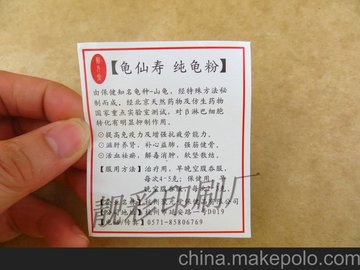 【龟仙寿 纯龟粉】
由保健知名龟种-山龟,经特殊方法秘
制而成。经北京天然药物及仿生药物
国家重点实验室测试,对β淋巴细胞
转化有明显抑制作用。
提高免疫力及增强抗疲劳能力。
滋肝养肾,补心益肺,强筋健骨,
活血祛瘀,解毒消肿,软坚散结。
【服用方法】治疗用,早晚空腹吞服,
每次4-5克;保健用,早
晚空腹吞服,每次2-
杭州
杭州市延安路 号D019
0571-85806769
靓彩印刷厂
china.makepolo.com